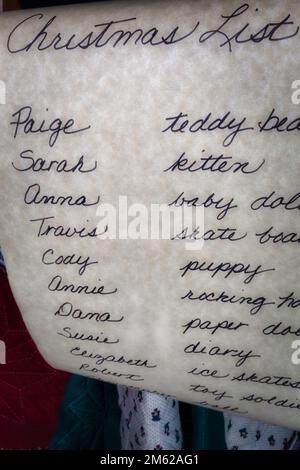 Christmas List
Paige teddy bea
Sarah kitten
Anna baby doll
Travis skate boar
Cody puppy
Annie rocking ho
Dana paper dol
Susie diary
Elizabeth ice skates
Robert toy soldi
alamy
Image ID: 2M62AG1
www.alamy.com